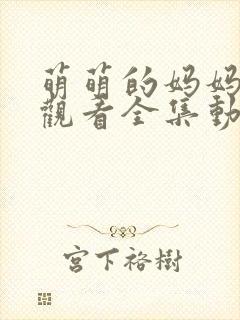 萌萌的妈妈
觀看全集動
宫下裕樹